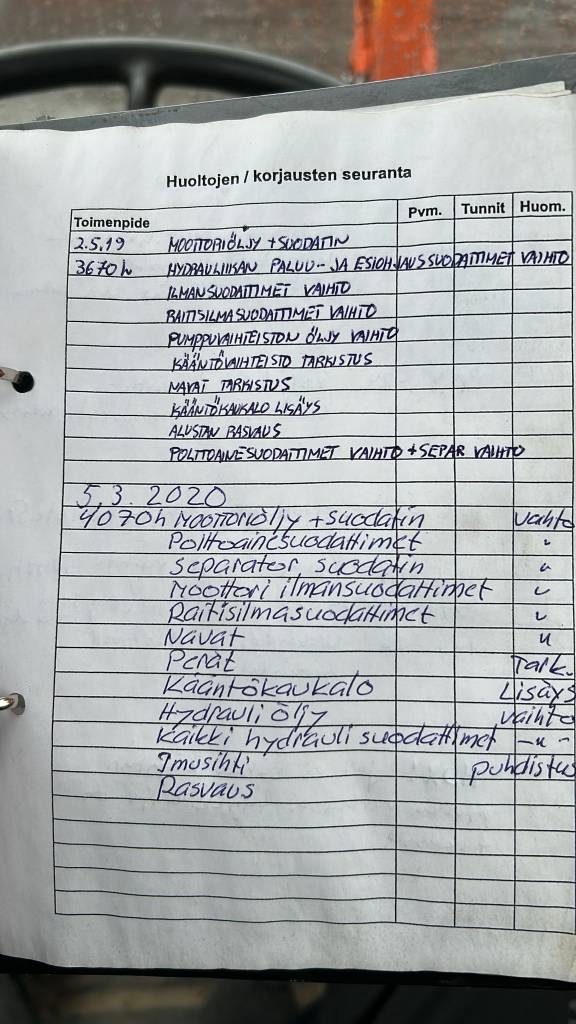 Huoltojen / korjausten seuranta
Toimenpide Pvm. Tunnit Huom.
2.5.19 MOOTTORIÖLJY + SUODATIN
3670h HYDRAULIIKAN PALUU- JA ESIOHJAUSSUODATTIMET VAIHTO
ILMANSUODATTIMET VAIHTO
RAITISILMASUODATTIMET VAIHTO
PUMPPUVAIHTEISTON ÖLJY VAIHTO
KÄÄNTÖVAIHTEISTO TARKISTUS
NAVAT TARKISTUS
KÄÄNTÖKAUKALO LISÄYS
ALUSTAN RASVAUS
POLTTOAINESUODATTIMET VAIHTO + SEPAR VAIHTO
5.3.2020
4070h Moottoriöljy + suodatin vaihto
Polttoainesuodattimet "
Separator suodatin "
Moottori ilmansuodattimet "
Raitisilmasuodattimet "
Navat "
Perät Tark.
Kääntökaukalo Lisäys
Hydrauli öljy vaihto
Kaikki hydrauli suodattimet -"-
Imusihti puhdistus
Rasvaus